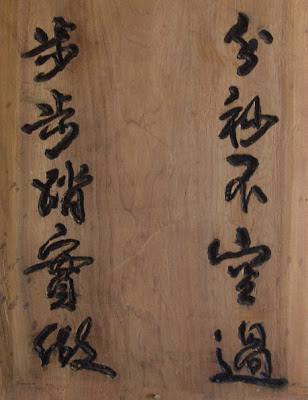 分秒不空過
步步踏實做